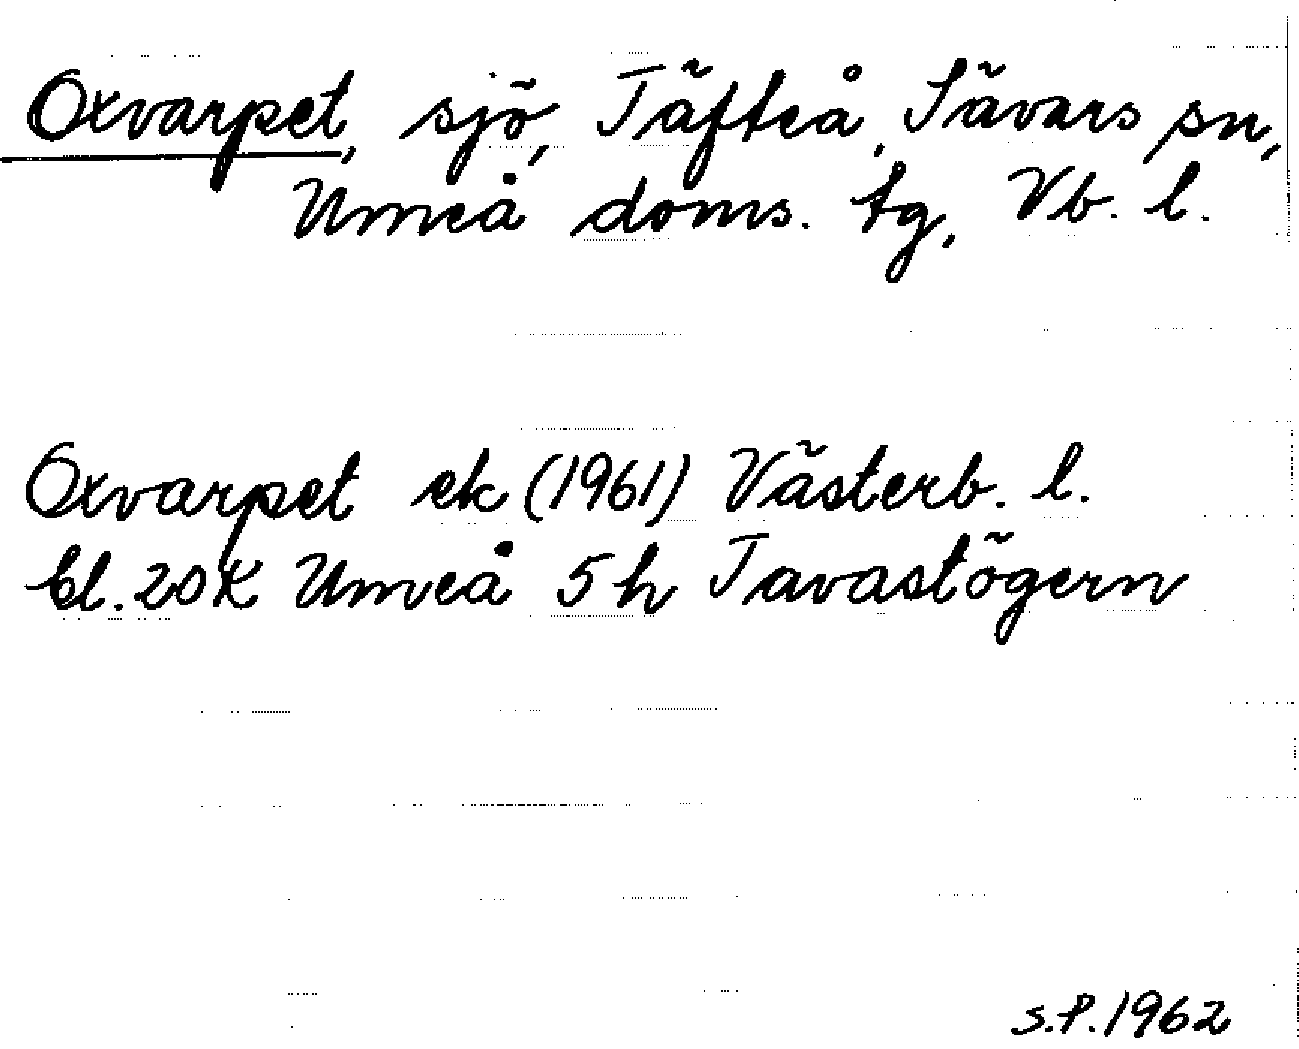 Oxvarpet, sjö, Täfteå, Sävars sn,
Umeå doms. tg, Vb. l.
Oxvarpet ek (1961) Västerb. l.
bl. 20K Umeå 5h Tavastögern
S.P. 1962